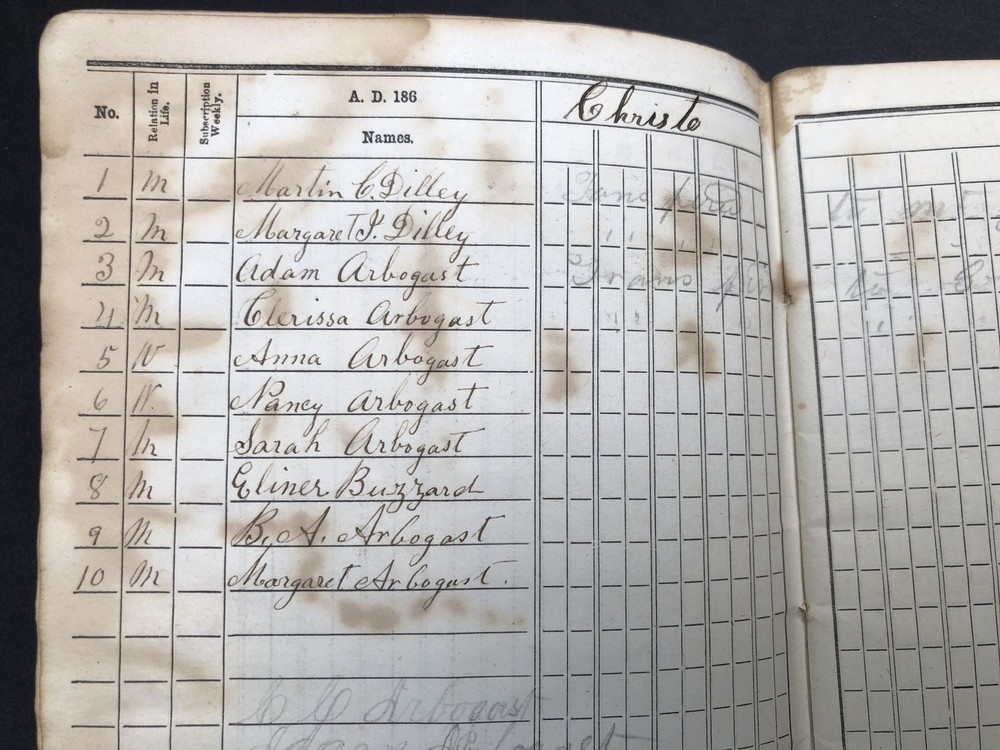 No. Relation in Life. Subscription Weekly. A. D. 186 Christ
Names.
1 M Martin C. Dilley
2 M Margaret J. Dilley " "
3 M Adam Arbogast Trans
4 M Clerissa Arbogast " "
5 W Anna Arbogast
6 W. Nancy Arbogast
7 M Sarah Arbogast
8 M Eliner Buzzard
9 M B. A. Arbogast
10 M Margaret Arbogast.
Arbogast
Adam Arbogast